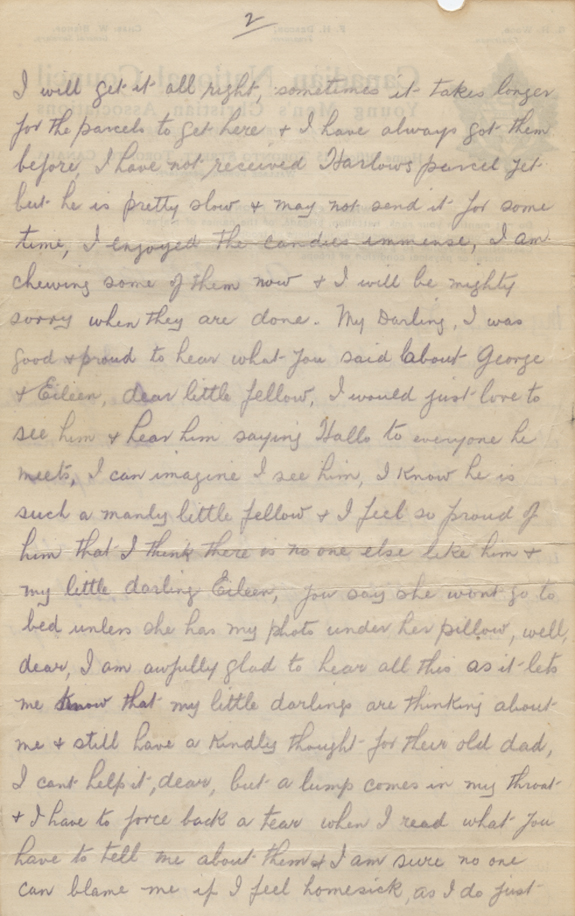 2
I will get it all right, sometimes it takes longer
for the parcels to get here & I have always got them
before, I have not received Harlows parcel yet
but he is pretty slow & may not send it for some
time, I enjoyed the candies immense, I am
chewing some of them now & I will be mighty
sorry when they are done. My Darling, I was
good & proud to hear what you said about George
& Eileen, dear little fellow, I would just love to
see him & hear him saying Hallo to everyone he
meets, I can imagine I see him, I know he is
such a manly little fellow & I feel so proud of
him that I think there is no one else like him &
my little darling Eileen, you say she wont go to
bed unless she has my photo under her pillow, well,
dear, I am awfully glad to hear all this as it lets
me know that my little darlings are thinking about
me & still have a kindly thought for their old dad,
I cant help it, dear, but a lump comes in my throat
& I have to force back a tear when I read what you
have to tell me about them & I am sure no one
can blame me if I feel homesick, as I do just
Canadian National Council
Young Men's Christian Associations